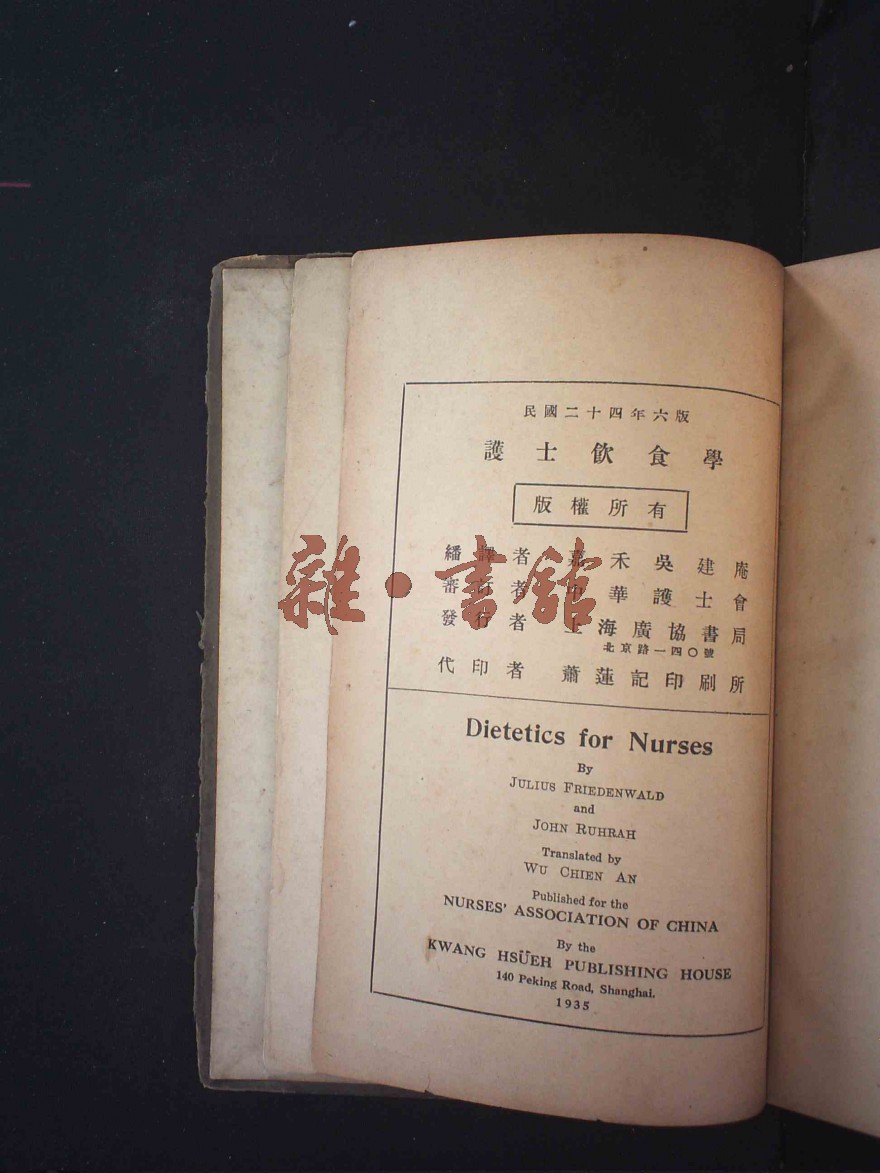 民國二十四年六版
護士飲食學
版權所有
繙譯者 嘉禾吳建庵
審訂者 中華護士會
發行者 上海廣協書局
北京路一四〇號
代印者 蕭蓮記印刷所
雜·書館
Dietetics for Nurses
By
JULIUS FRIEDENWALD
and
JOHN RUHRAH
Translated by
WU CHIEN AN
Published for the
NURSES' ASSOCIATION OF CHINA
By the
KWANG HSÜEH PUBLISHING HOUSE
140 Peking Road, Shanghai.
1935